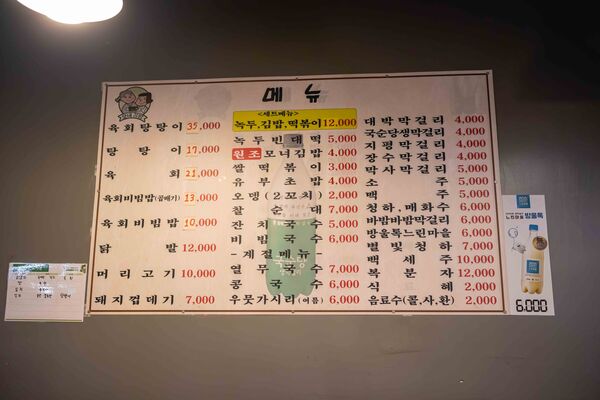 메 뉴
육회탕탕이 35,000
탕 탕 이 17,000
육 회 21,000
육회비빔밥(곱빼기) 13,000
육회비빔밥 10,000
닭 발 12,000
머리고기 10,000
돼지껍데기 7,000
<세트메뉴>
녹두,김밥,떡볶이 12,000
녹두빈대떡 5,000
원조모녀김밥 4,000
쌀 떡 볶 이 3,000
유 부 초 밥 4,000
오뎅 (2꼬치) 2,000
찰 순 대 7,000
잔 치 국 수 5,000
비 빔 국 수 6,000
-계절메뉴-
열 무 국 수 6,000
콩 국 수 6,000
우뭇가시리(여름) 6,000
대박막걸리 4,000
국순당생막걸리 4,000
지평막걸리 4,000
장수막걸리 4,000
막사막걸리 5,000
소 주 5,000
맥 주 5,000
청하, 매화수 6,000
바밤바밤막걸리 6,000
방울톡느린마을 6,000
별 빛 청 하 7,000
백 세 주 10,000
복 분 자 12,000
식 혜 2,000
음료수(콜,사,환) 2,000
느린마을 방울톡
6,000